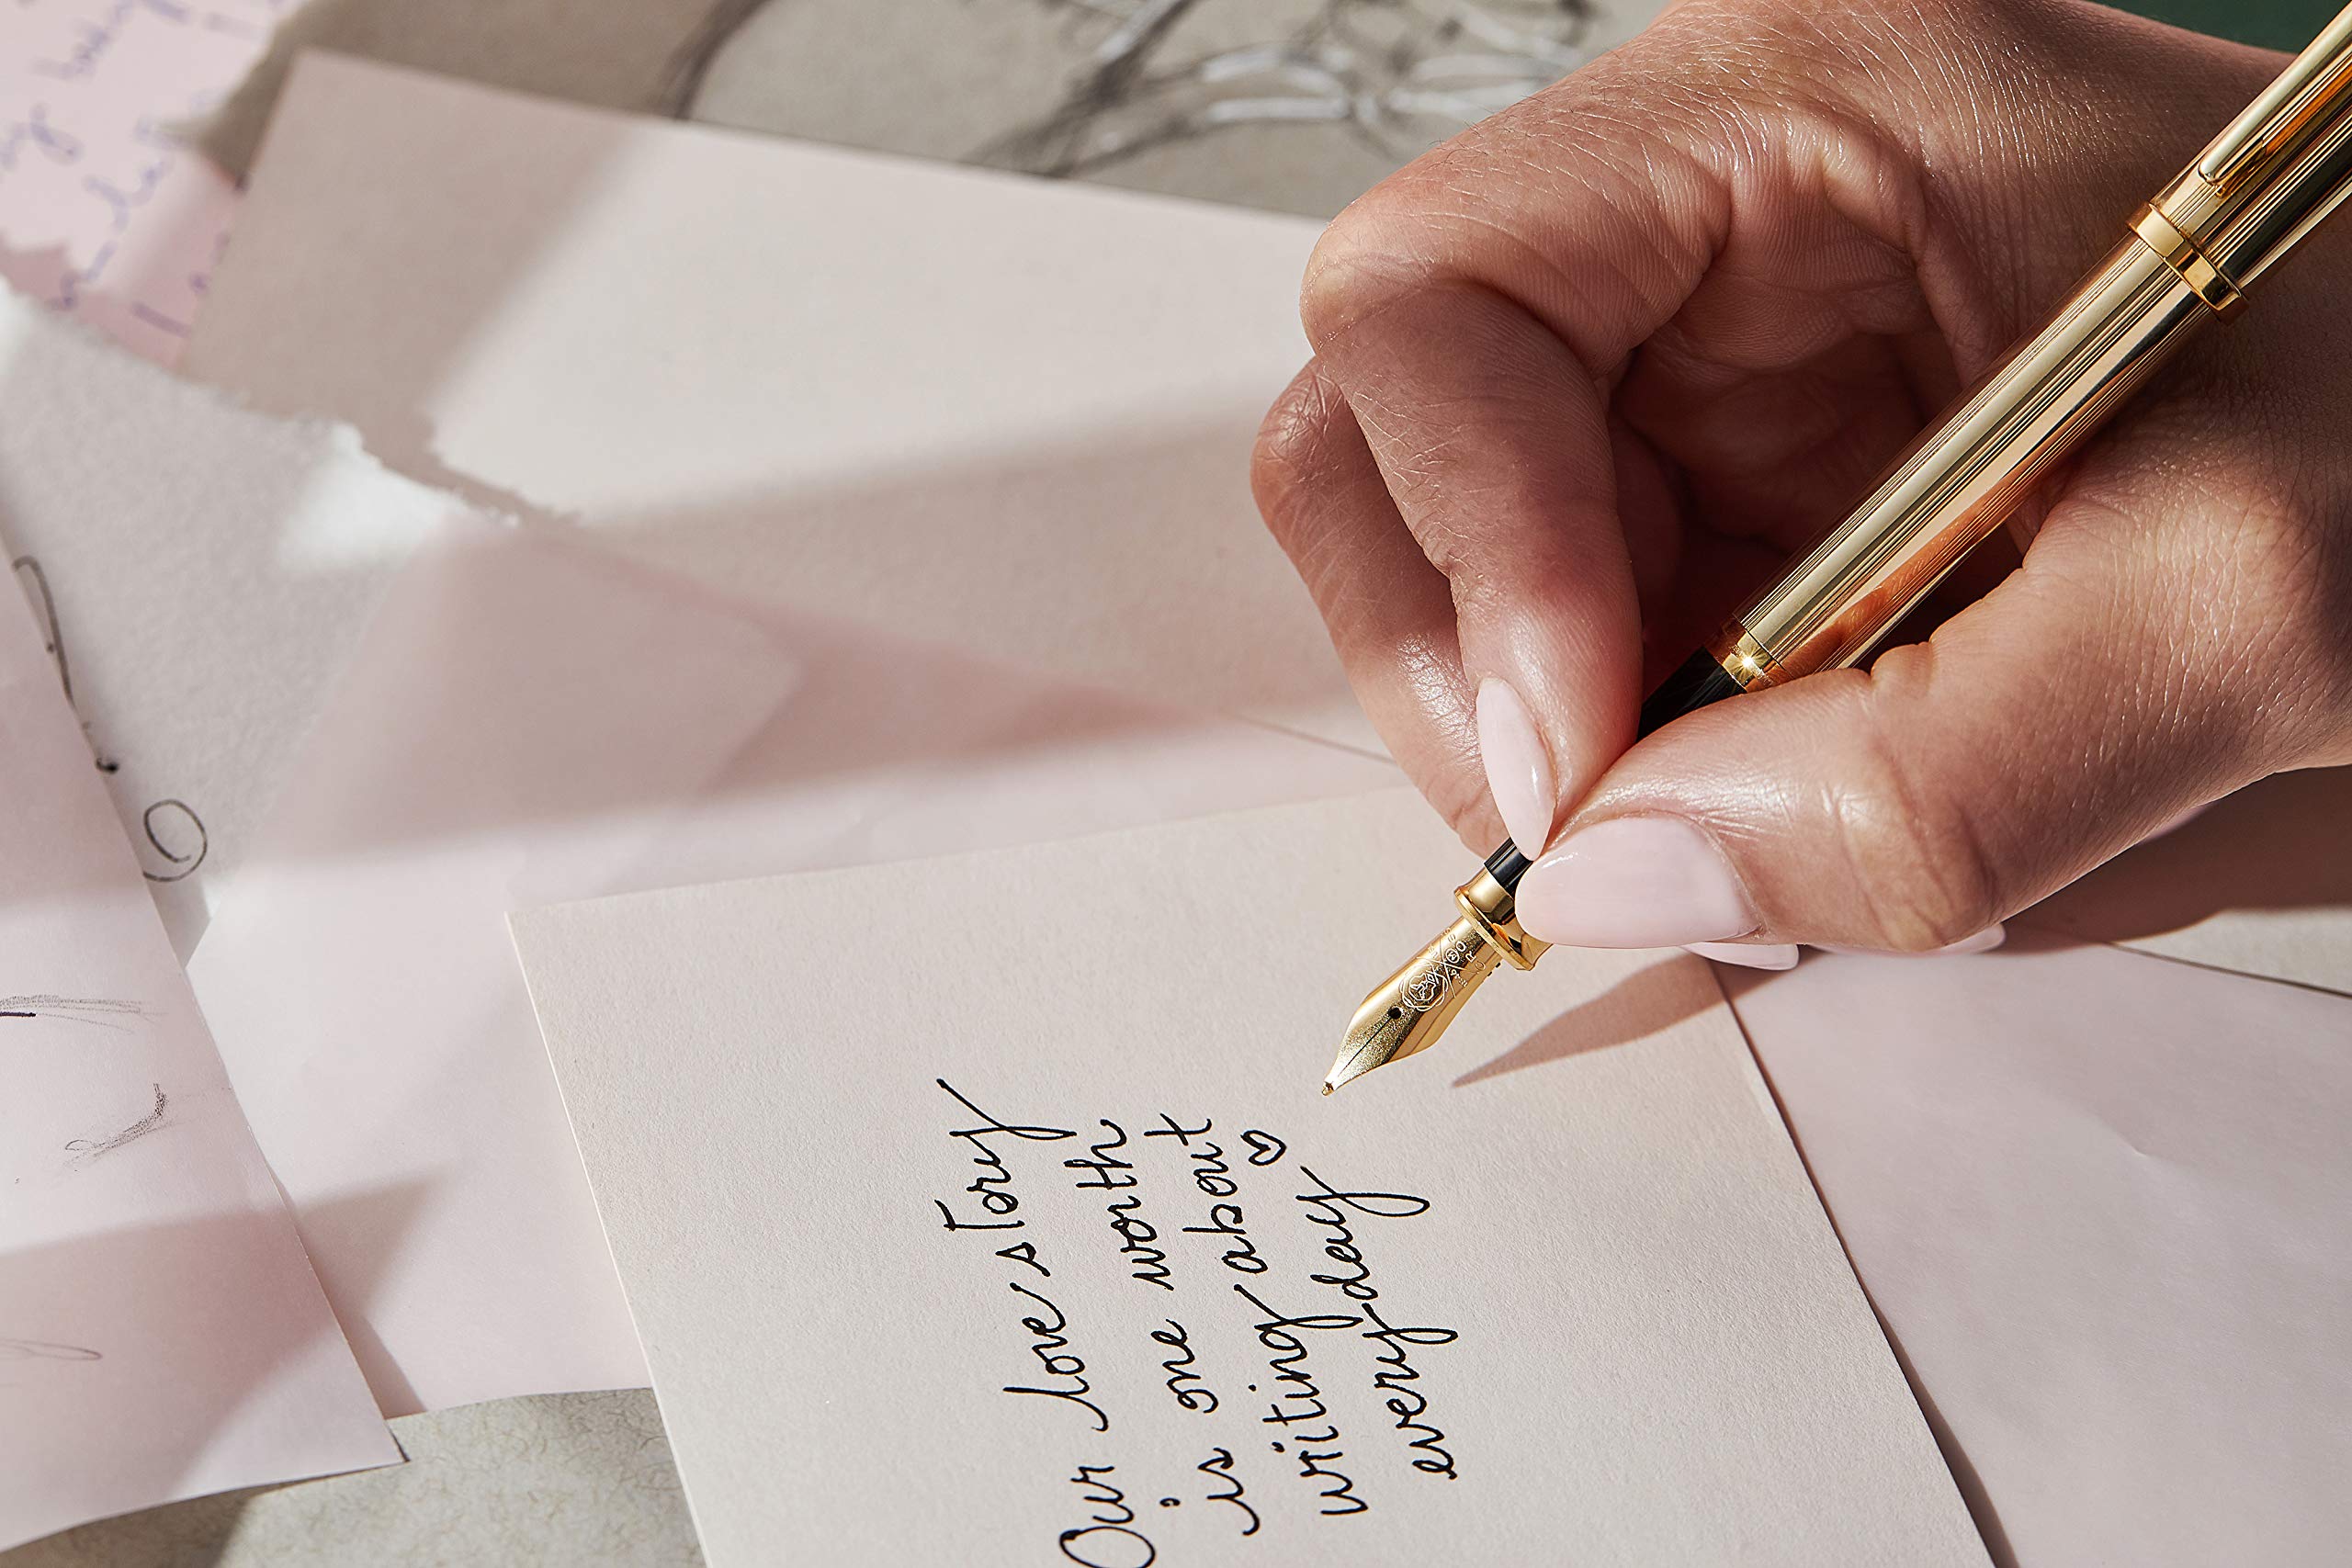 Our love story
is one worth
writing about
everyday ♡